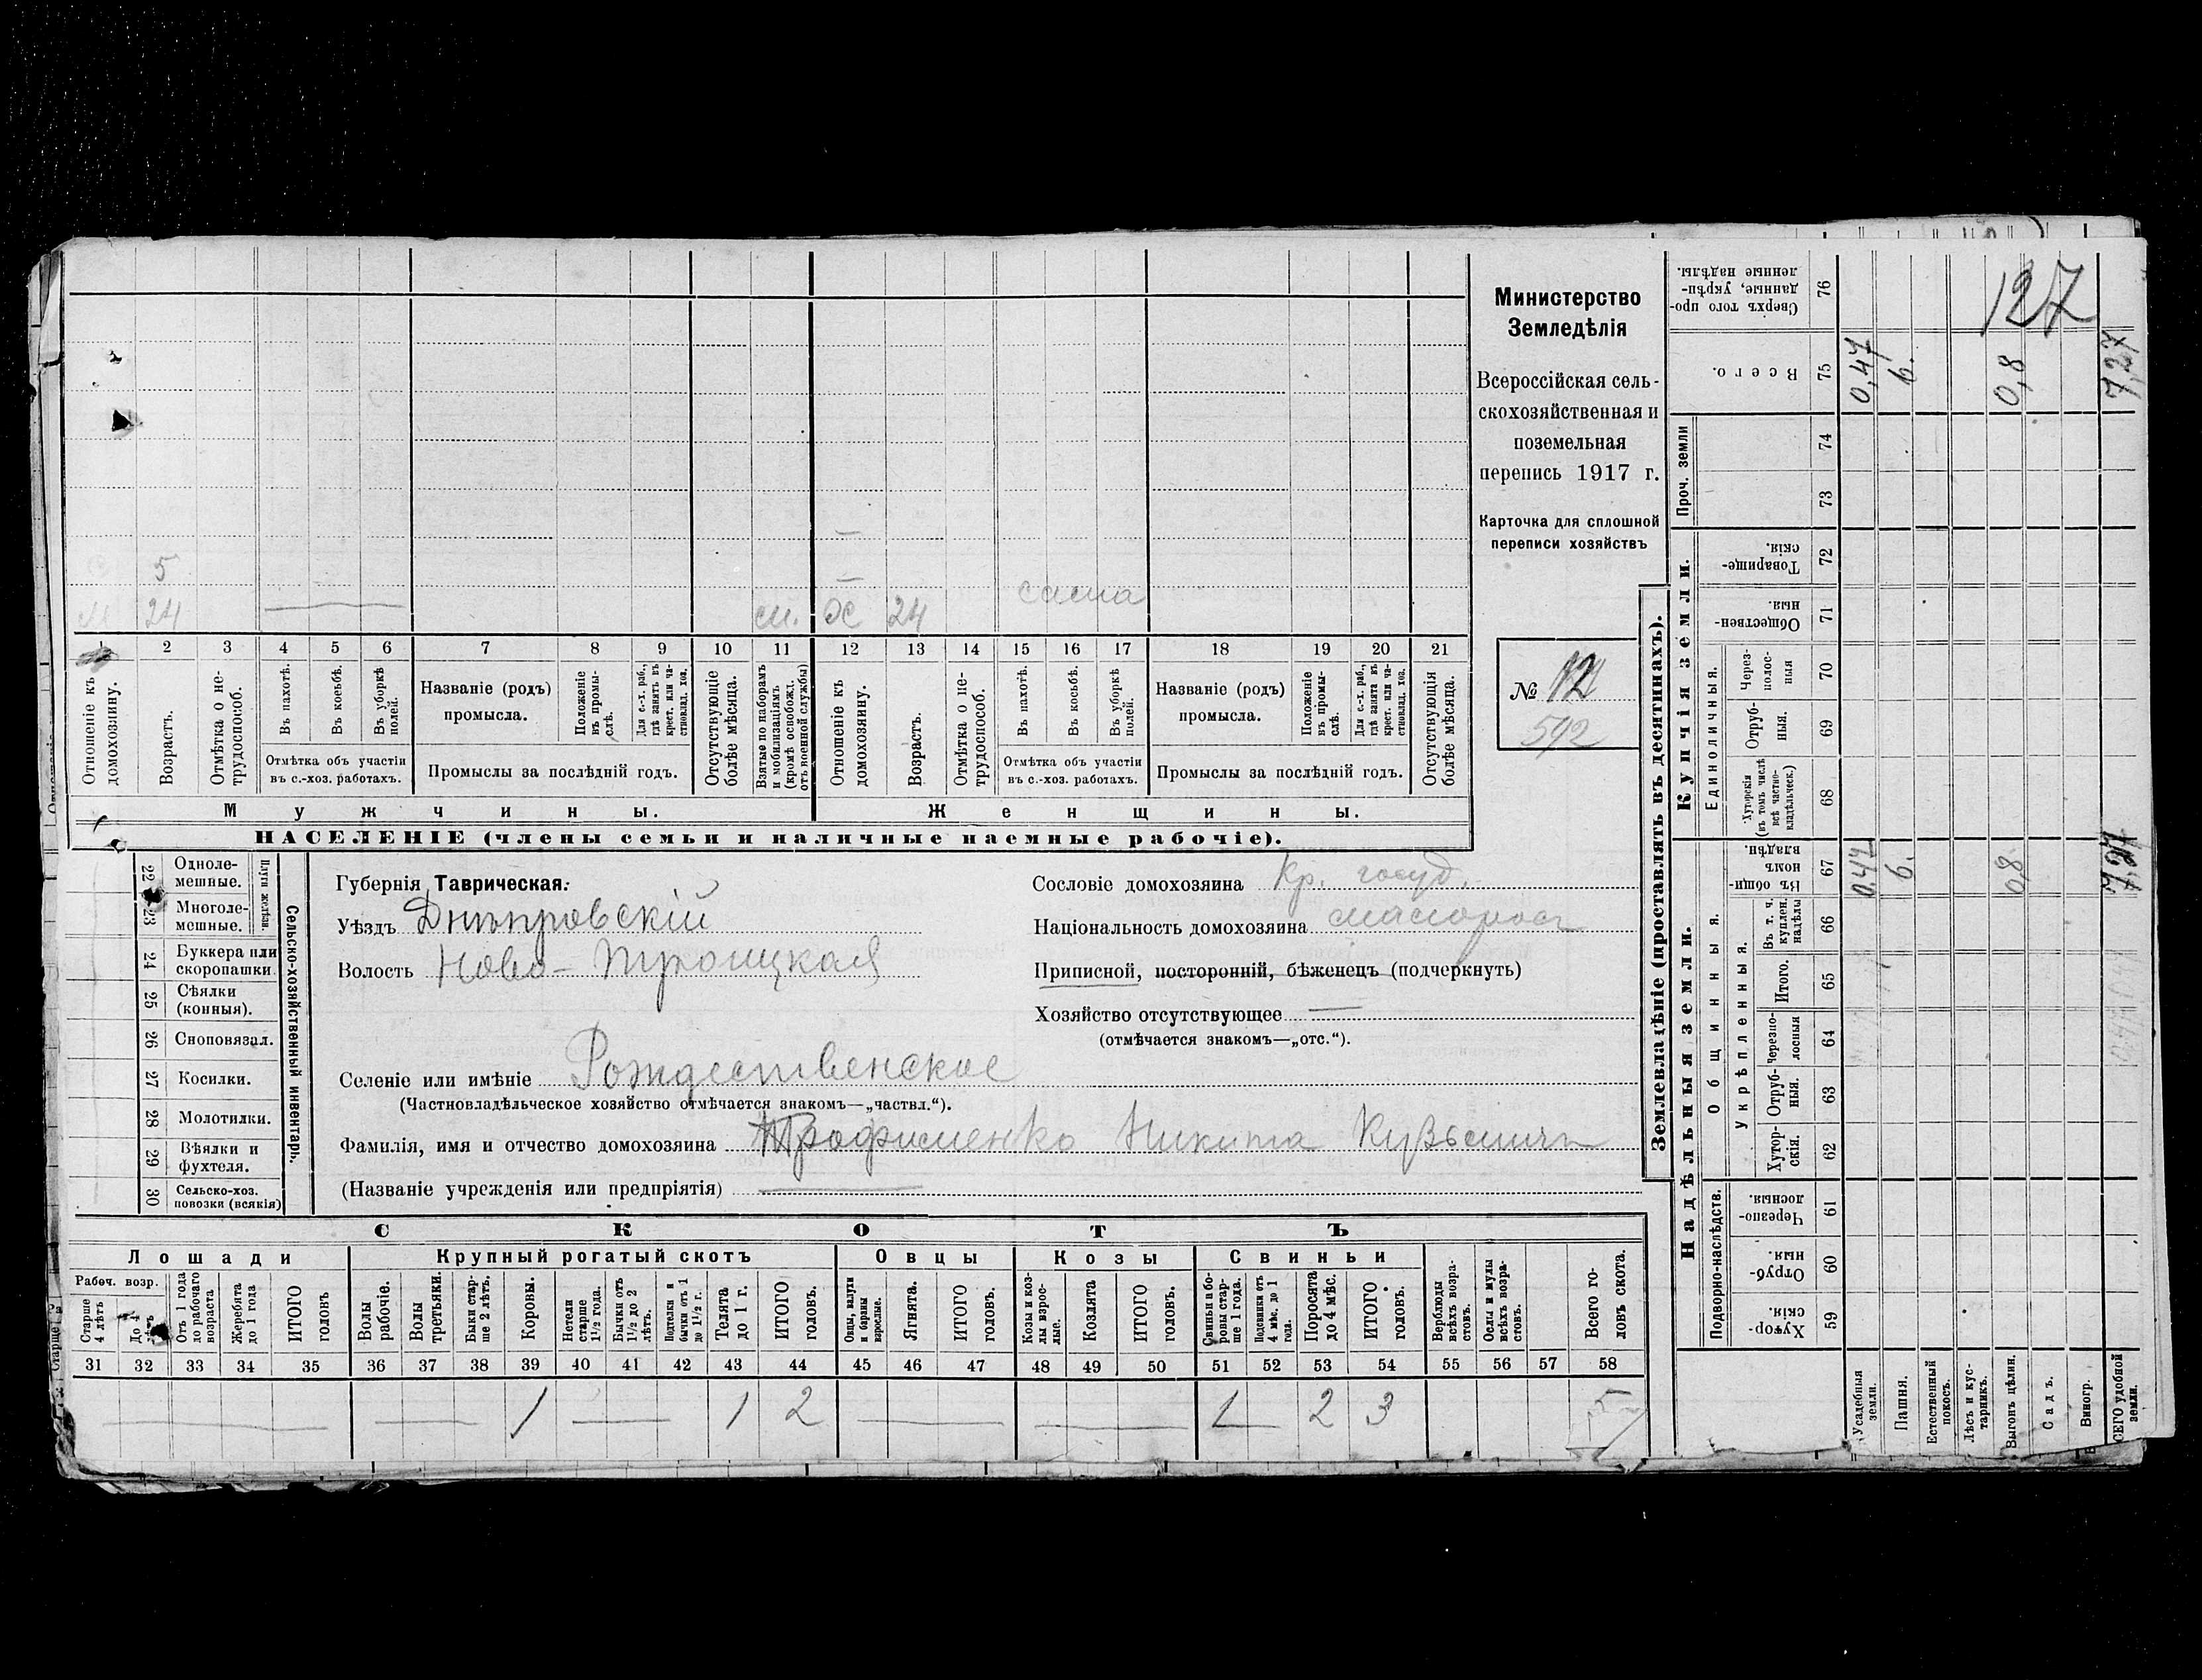 Министерство
Земледѣлія
Всероссійская сель-
скохозяйственная и
поземельная
перепись 1917 г.
Карточка для сплошной
переписи хозяйствъ
№ 12
592
5
24
см. Ж 24 сама
1 2 3 4 5 6 7 8 9 10 11 12 13 14 15 16 17 18 19 20 21
Отношеніе къ домохозяину.
Возрастъ.
Отмѣтка о не-трудоспособ.
Въ пахотѣ.
Въ косьбѣ.
Въ уборкѣ полей.
Отмѣтка объ участіи
въ с.-хоз. работахъ.
Названіе (родъ)
промысла.
Положеніе въ промы-слѣ.
Для с.-х. раб., гдѣ занятъ въ крест. или ча-стновлад. хоз.
Промыслы за послѣдній годъ.
Отсутствующіе болѣе мѣсяца.
Взятые по наборамъ и мобилизаціямъ (кромѣ освобожд. отъ военной службы)
Отношеніе къ домохозяину.
Возрастъ.
Отмѣтка о не-трудоспособ.
Въ пахотѣ.
Въ косьбѣ.
Въ уборкѣ полей.
Отмѣтка объ участіи
въ с.-хоз. работахъ.
Названіе (родъ)
промысла.
Положеніе въ промы-слѣ.
Для с.-х. раб., гдѣ занята въ крест. или ча-стновлад. хоз.
Промыслы за послѣдній годъ.
Отсутствующія болѣе мѣсяца.
Мужчины.
Женщины.
НАСЕЛЕНІЕ (члены семьи и наличные наемные рабочіе).
Сельско-хозяйственный инвентарь.
Плуги желѣзн.
22 Одноле-мешные.
23 Многоле-мешные.
24 Буккера или скоропашки
25 Сѣялки (конныя).
26 Сноповязал.
27 Косилки.
28 Молотилки.
29 Вѣялки и фухтеля.
30 Сельско-хоз. повозки (всякія)
Губернія Таврическая.
Уѣздъ Днѣпровскій
Волость Ново-Троицкая
Сословіе домохозяина Кр. госуд.
Національность домохозяина малоросс
Приписной, посторонній, бѣженецъ (подчеркнуть)
Хозяйство отсутствующее —
(отмѣчается знакомъ—„отс.“).
Селеніе или имѣніе Рождественское
(Частновладѣльческое хозяйство отмѣчается знакомъ—„частвл.“).
Фамилія, имя и отчество домохозяина Трофименко Никита Кузьмичъ
(Названіе учрежденія или предпріятія) —
СКОТЪ
Лошади
Крупный рогатый скотъ
Овцы
Козы
Свиньи
Рабоч. возр.
Старше 4 лѣтъ
До 4 лѣтъ
Отъ 1 года до рабочаго возраста
Жеребята до 1 года
ИТОГО головъ
Волы рабочіе.
Волы третьяки.
Быки стар-ше 2 лѣтъ.
Коровы.
Нетели старше 1½ года.
Бычки отъ 1½ до 2 лѣтъ.
Подтелки и бычки отъ 1 до 1½ г.
Телята до 1 г.
ИТОГО головъ.
Овцы, валухи и бараны взрослые.
Ягнята.
ИТОГО головъ.
Козы и коз-лы взрос-лые.
Козлята
ИТОГО головъ.
Свиньи и бо-ровы стар-ше 1 года.
Подсвинки отъ 4 мѣс. до 1 года.
Поросята до 4 мѣс.
ИТОГО головъ.
Верблюды всѣхъ возра-стовъ.
Ослы и мулы всѣхъ возра-стовъ.
Всего го-ловъ скота.
31 32 33 34 35 36 37 38 39 40 41 42 43 44 45 46 47 48 49 50 51 52 53 54 55 56 57 58
1 1 2 1 2 3 5
Землевладѣніе (проставлять въ десятинахъ).
Надѣльныя земли.
Купчія земли.
Проч. земли
Подворно-наслѣдств.
Общинныя.
Укрѣпленныя.
Единоличныя.
Хутор-скія. 59
Отруб-ныя. 60
Черезпо-лосныя. 61
Хутор-скія. 62
Отруб-ныя. 63
Черезпо-лосныя 64
Итого. 65
Въ т. ч. куплен. надѣлы 66
Въ общин-номъ владѣн. 67
Хуторскія (въ томъ числѣ всѣ частно-владѣльческ.) 68
Отруб-ныя. 69
Через-полос-ныя 70
Обществен-ныя. 71
Товарище-скія. 72
73
74
Всего. 75
Сверхъ того про-данные, укрѣп-ленные надѣлы. 76
Усадебныя земли.
Пашня.
Естественный покосъ.
Лѣсъ и кус-тарникъ.
Выгонъ цѣлин.
Садъ.
Виногр.
СЕГО удобной земли.
0,47 6. 0,8 7,27
0,47 6. 0,8 7,27
127